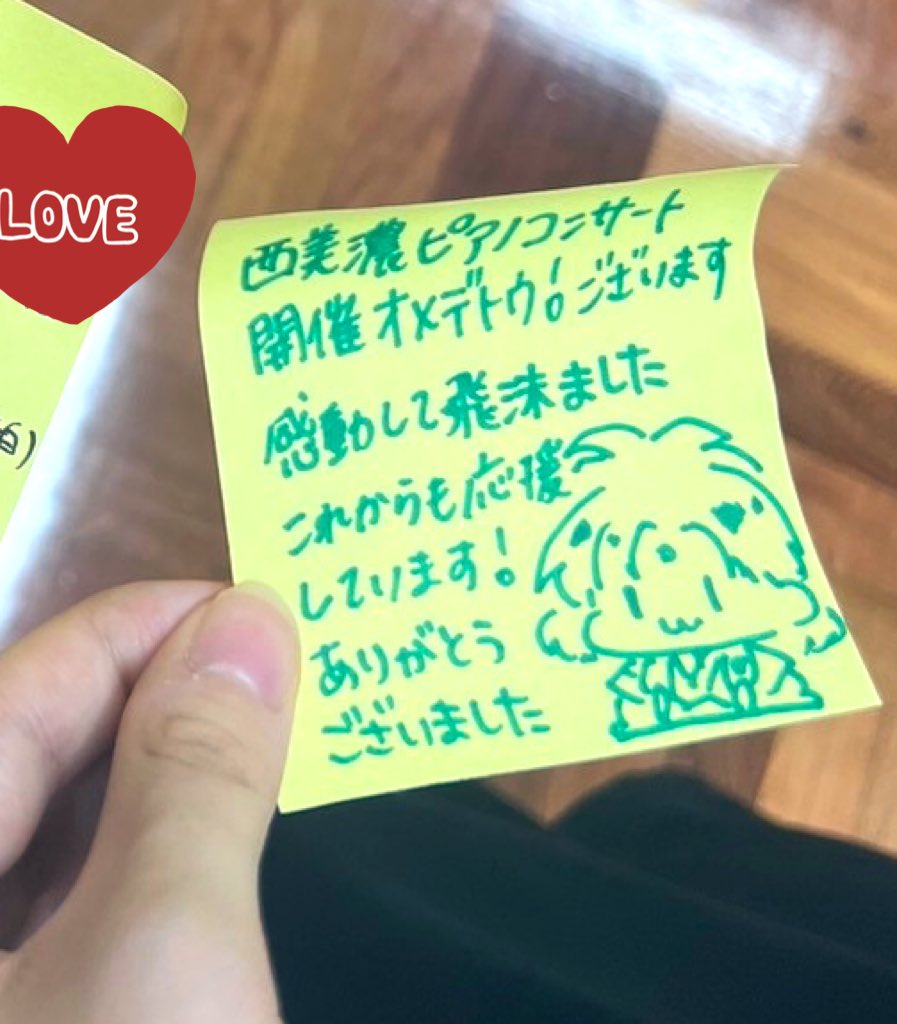 LOVE
西美濃ピアノコンサート
開催オメデトウ!ございます
感動して飛沫ました
これからも応援
しています!
ありがとう
ございました